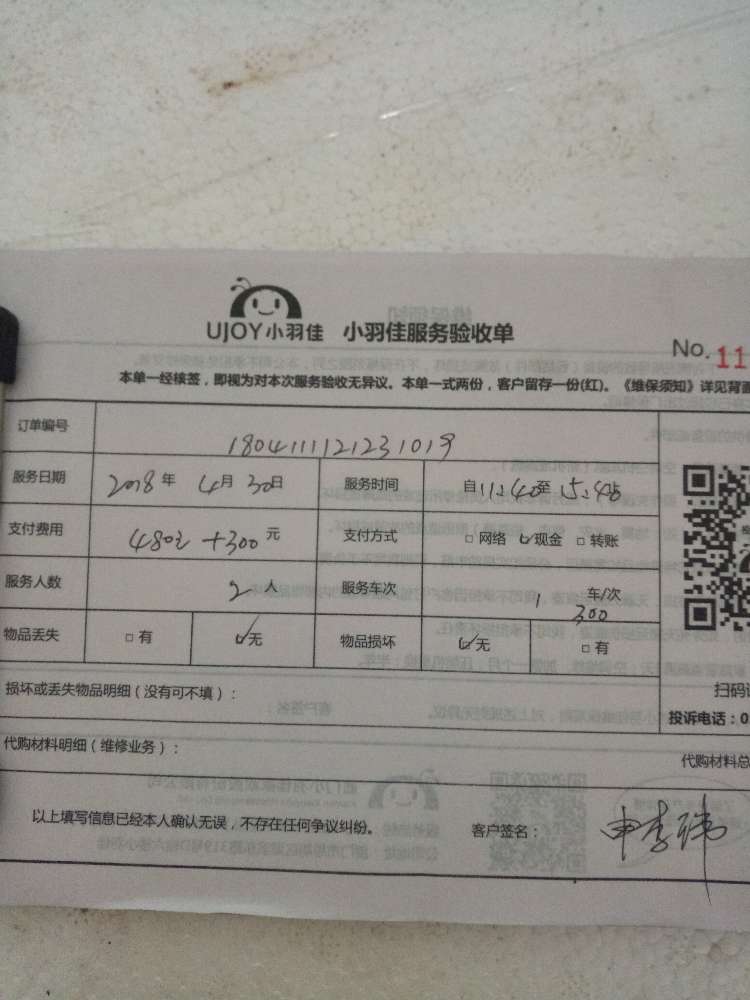 UJOY小羽佳 小羽佳服务验收单
No. 11
本单一经核签，即视为对本次服务验收无异议。本单一式两份，客户留存一份(红)。《维保须知》详见背面
订单编号 1804111121231019
服务日期 2018年 4月 30日 服务时间 自11:40至15:40
支付费用 480元 +300元 支付方式 □网络 ☑现金 □转账
服务人数 2人 服务车次 1 车/次 300
物品丢失 □有 ☑无 物品损坏 ☑无 □有
损坏或丢失物品明细（没有可不填）：
扫码
投诉电话：0
代购材料明细（维修业务）：
代购材料总
以上填写信息已经本人确认无误，不存在任何争议纠纷。 客户签名： 申李玮